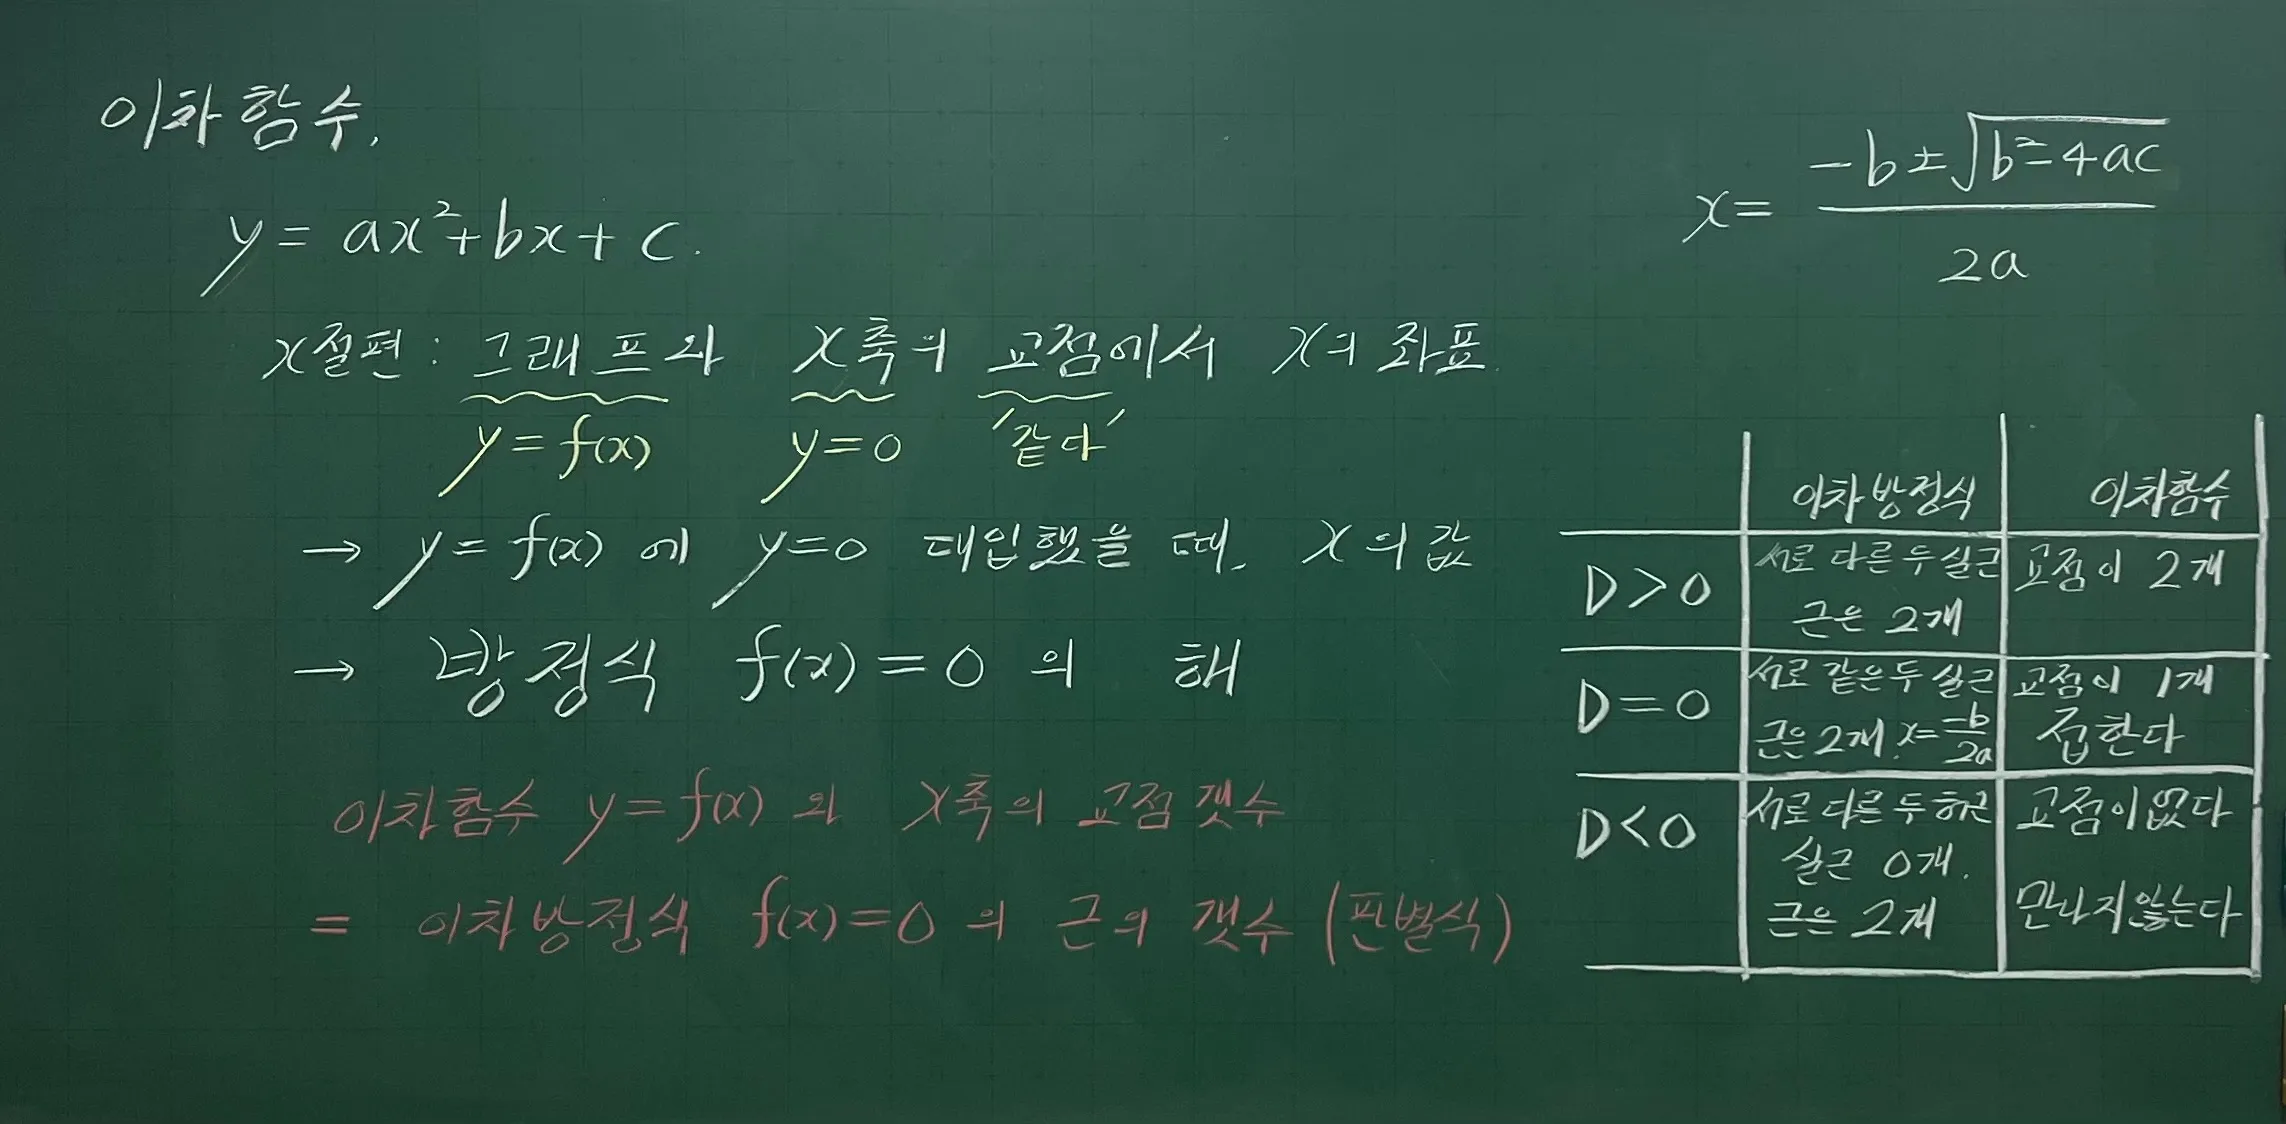 이차함수,
y = ax²+bx+c.
x절편 : 그래프와 x축의 교점에서 x의 좌표.
y=f(x) y=0 '같다'
→ y=f(x) 에 y=0 대입했을 때, x의 값
→ 방정식 f(x)=0 의 해
이차함수 y=f(x) 와 x축의 교점 갯수
= 이차방정식 f(x)=0 의 근의 갯수 (판별식)
x= (-b±√(b²-4ac))/2a
이차방정식 이차함수
D>0 서로 다른 두 실근 교점이 2개
근은 2개
D=0 서로 같은 두 실근 교점이 1개
근은 2개. x=-b/2a 접한다
D<0 서로 다른 두 허근 교점이 없다
실근 0개.
근은 2개 만나지 않는다